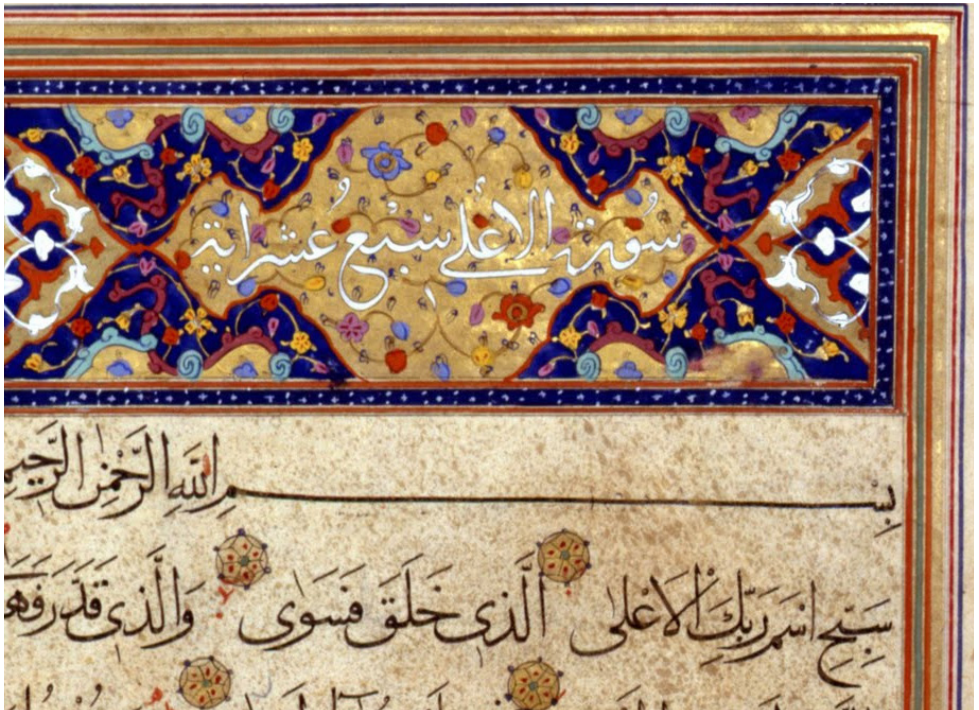 سُورة الاعلى سبع عشر اية
بِسْمِ اللّٰهِ الرَّحْمٰنِ الرَّحِيمِ
سَبِّحِ اسْمَ رَبِّكَ الْاَعْلَى الَّذِى خَلَقَ فَسَوٰى وَالَّذِى قَدَّرَ فَهَ